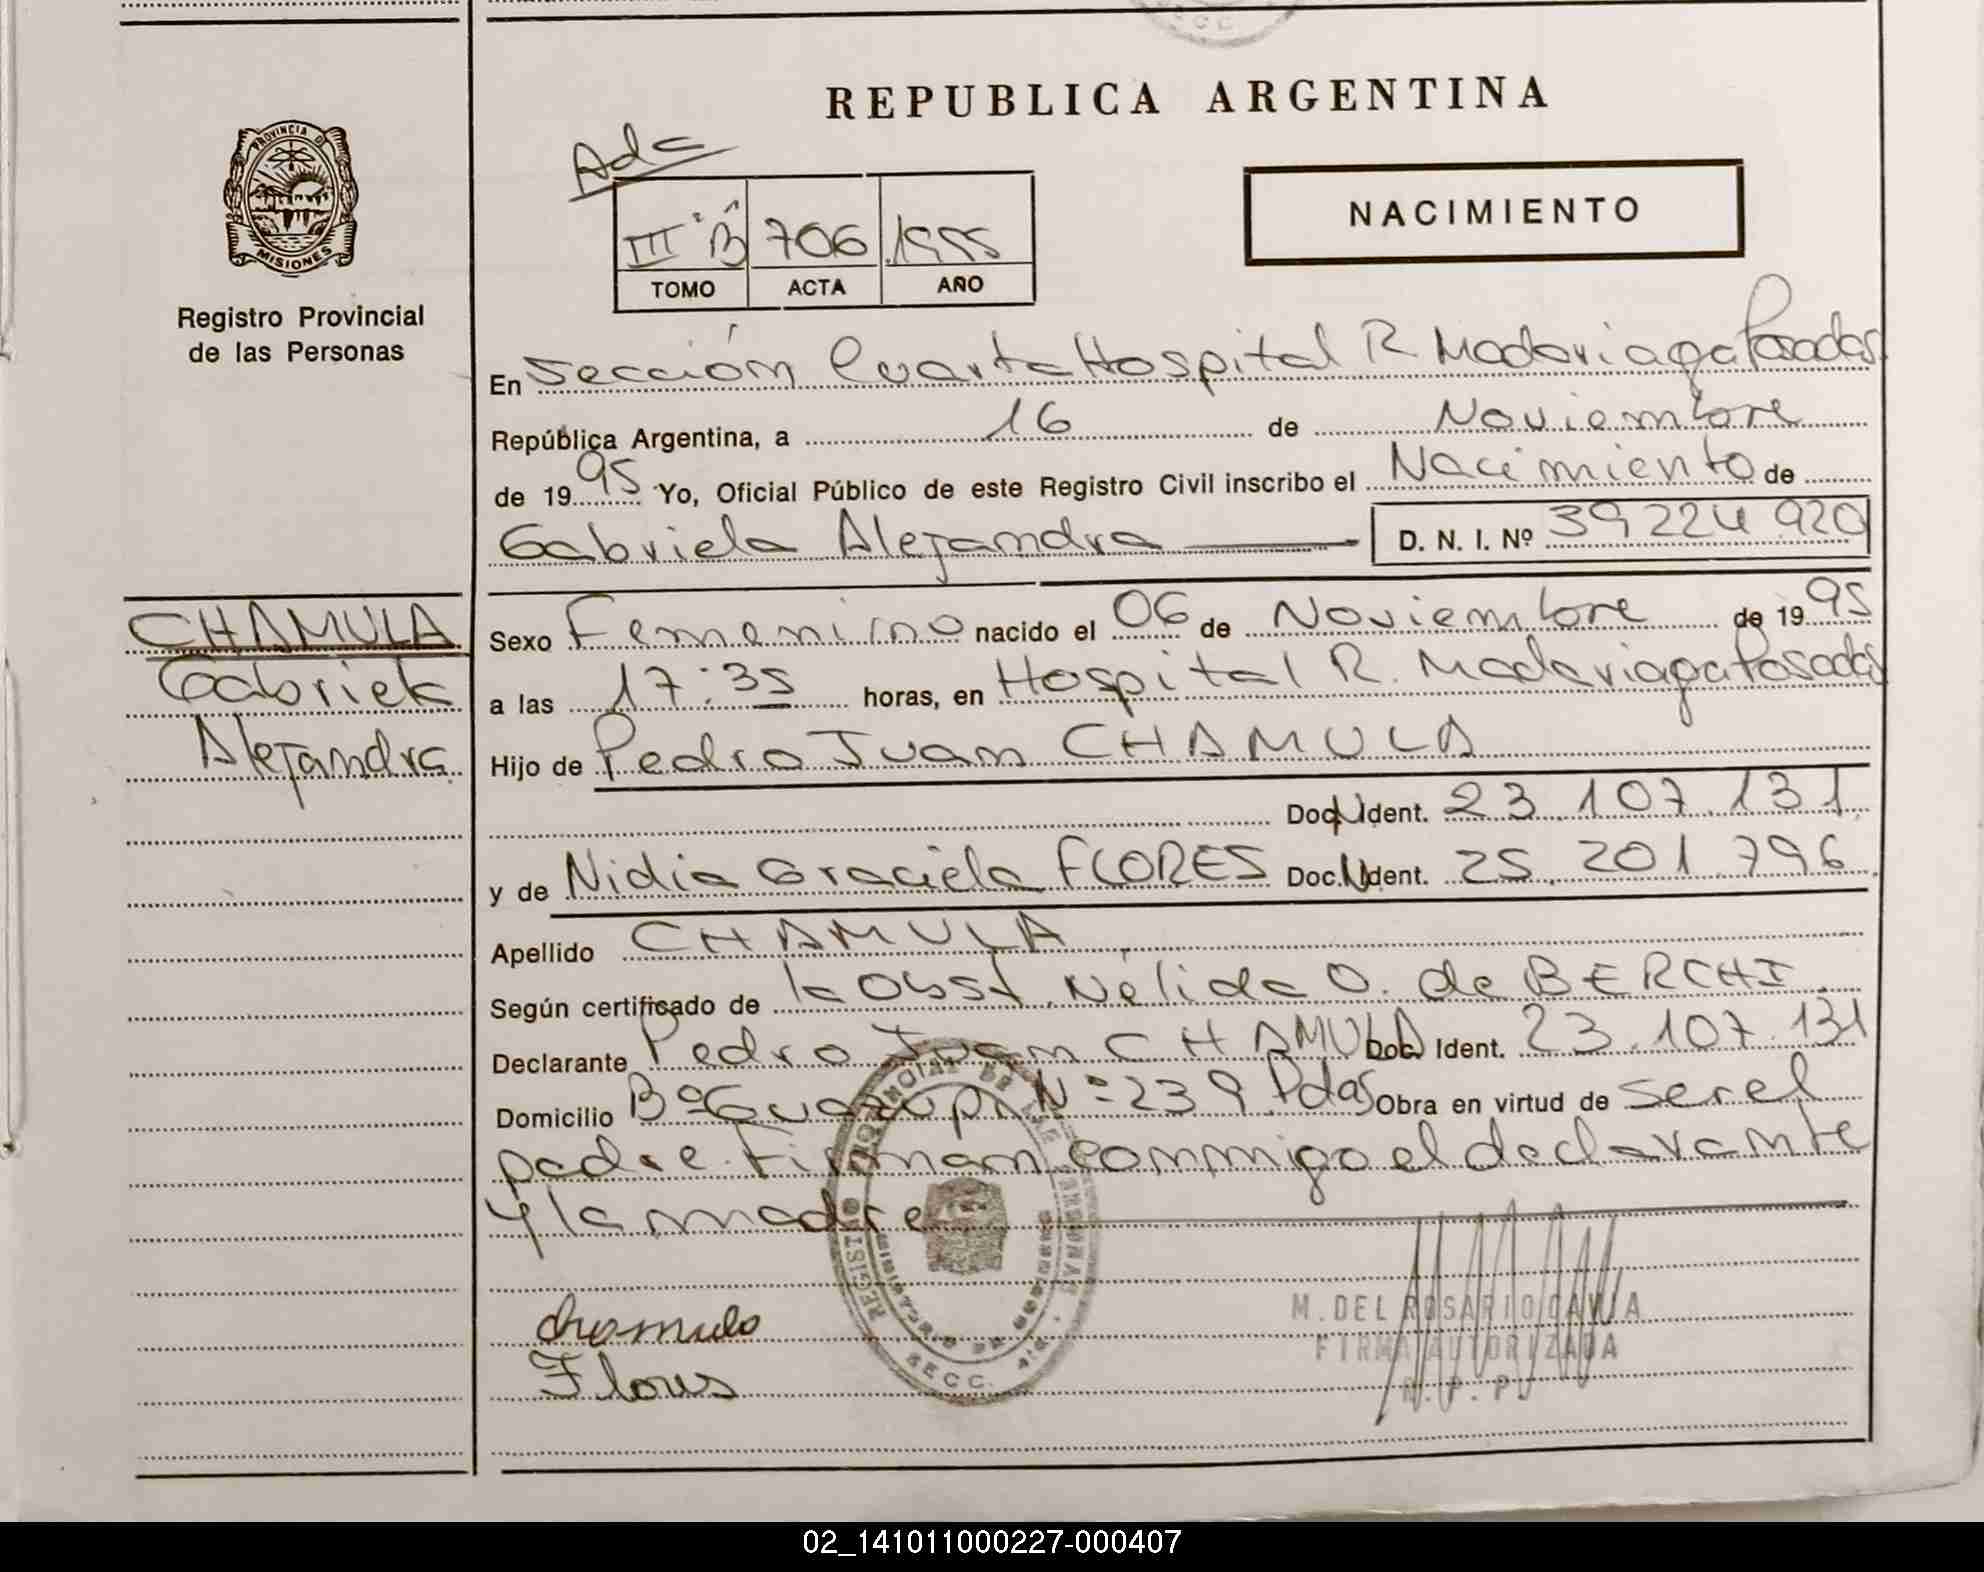 REPUBLICA ARGENTINA
Adc
NACIMIENTO
III "B" 706 1995
TOMO ACTA AÑO
PROVINCIA DE
MISIONES
Registro Provincial
de las Personas
En Sección Cuarta Hospital R. Madariaga Posadas
República Argentina, a 16 de Noviembre
de 1995 Yo, Oficial Público de este Registro Civil inscribo el Nacimiento de
Gabriela Alejandra D. N. I. Nº 39 224 920
CHAMULA
Gabriela
Alejandra
Sexo Femenino nacido el 06 de Noviembre de 1995
a las 17:35 horas, en Hospital R. Madariaga Posadas
Hijo de Pedro Juan CHAMULA
Doc. N. Ident. 23.107.131
y de Nidia Graciela FLORES Doc. N. Ident. 25.201.796
Apellido CHAMULA
Según certificado de la Obst. Nélida O. de BERCHI
Declarante Pedro Juan CHAMULA Doc. Ident. 23.107.131
Domicilio Bº Guazupi Nº 239 Pdas Obra en virtud de ser el
padre. Firman conmigo el declarante
y la madre
REGISTRO PROVINCIAL DE LAS PERSONAS
MINISTERIO DE GOBIERNO
SECC. 4ta.
Chamula
Flores
M. DEL ROSARIO CAVIA
FIRMA AUTORIZADA
R. P. P.
02_141011000227-000407